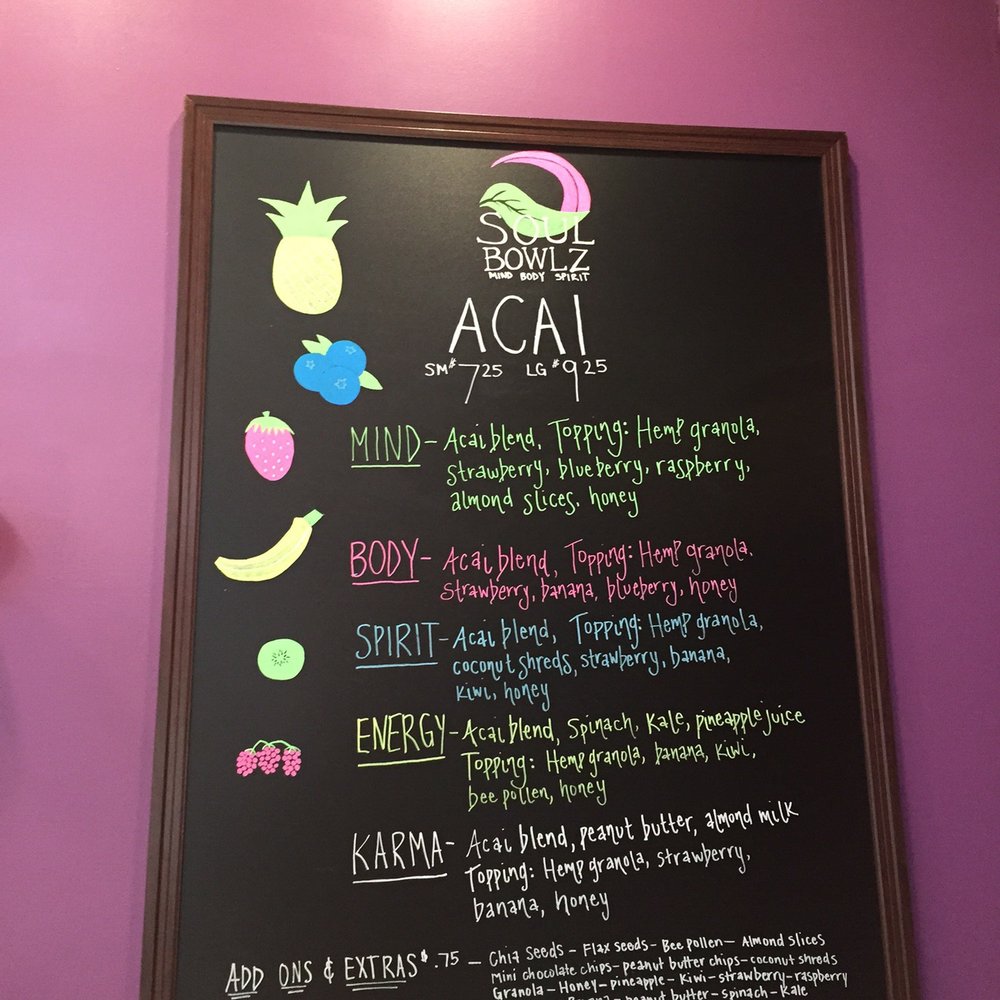 SOUL
BOWLZ
MIND BODY SPIRIT
ACAI
SM $7.25 LG $9.25
MIND - Acai blend, Topping: Hemp granola,
strawberry, blueberry, raspberry,
almond slices, honey
BODY - Acai blend, Topping: Hemp granola,
strawberry, banana, blueberry, honey
SPIRIT - Acai blend, Topping: Hemp granola,
coconut shreds, strawberry, banana,
kiwi, honey
ENERGY - Acai blend, Spinach, Kale, pineapple juice
Topping: Hemp granola, banana, kiwi,
bee pollen, honey
KARMA - Acai blend, peanut butter, almond milk
Topping: Hemp granola, strawberry,
banana, honey
ADD ONS & EXTRAS $.75 - Chia Seeds - Flax seeds - Bee pollen - Almond slices
Mini chocolate chips - peanut butter chips - coconut shreds
Granola - Honey - pineapple - Kiwi - strawberry - raspberry
Banana - peanut butter - spinach - Kale